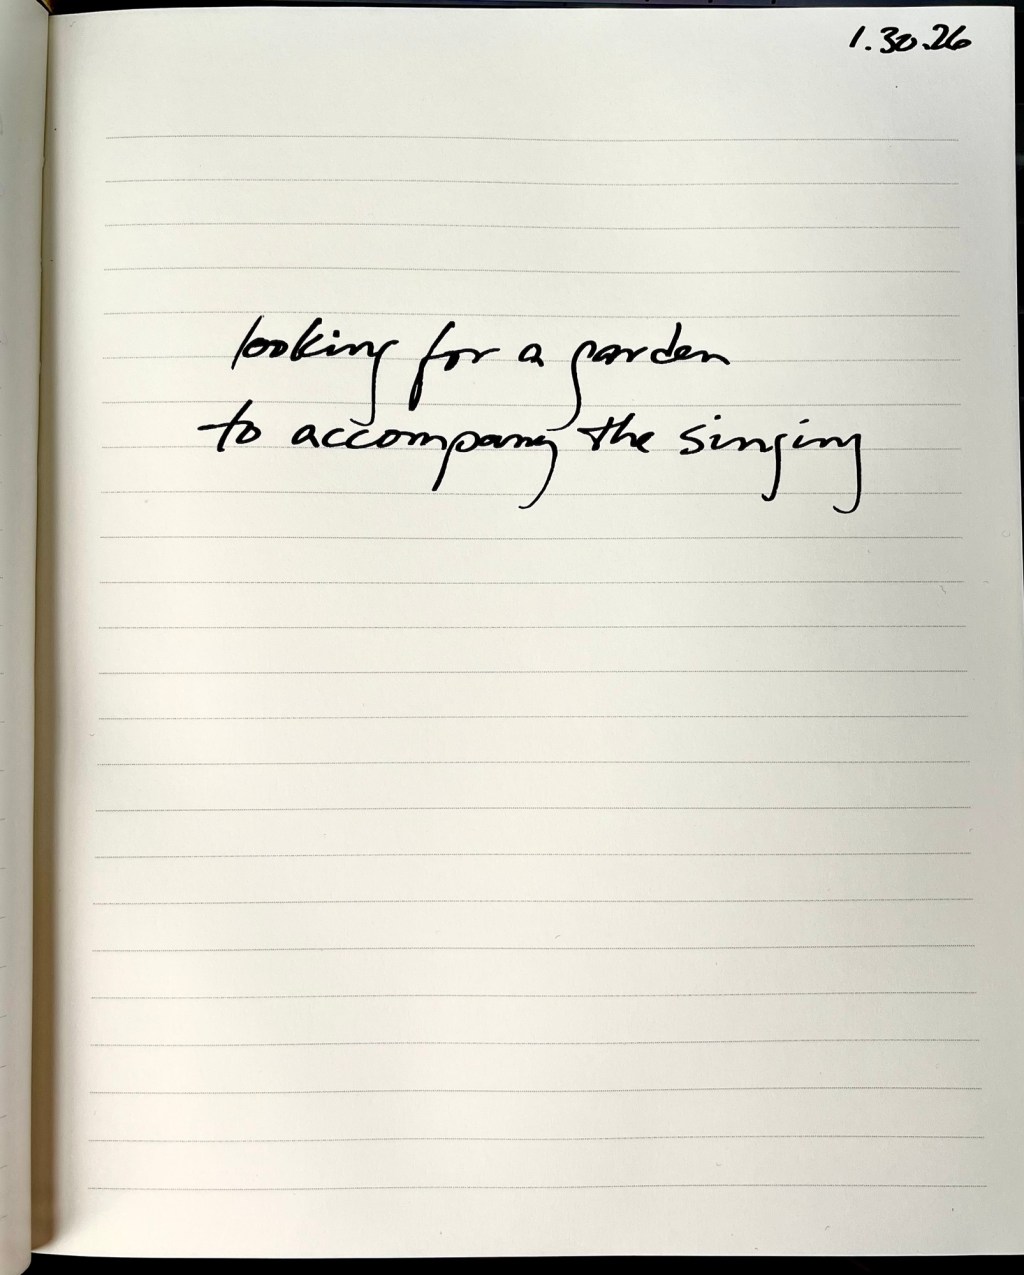 1.30.26
looking for a garden
to accompany the singing